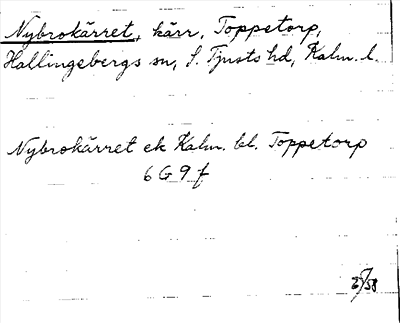 Nybrokärret, kärr, Toppetorp,
Hallingebergs sn, S. Tjusts hd, Kalm. l.
Nybrokärret ek Kalm. bl. Toppetorp
6 G 9 f